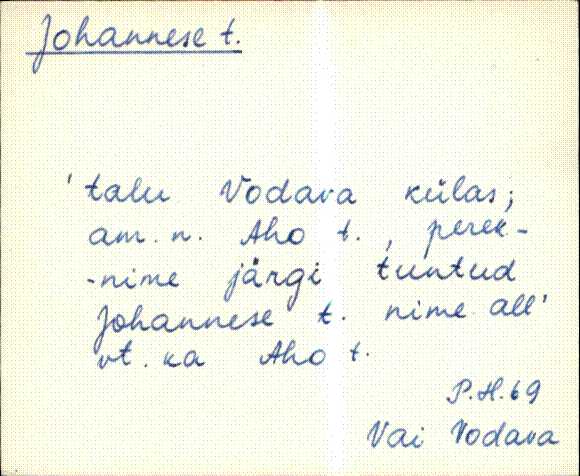 Johannese t.
'talu Vodava külas;
am. n. Aho t., perek-
-nime järgi tuntud
Johannese t. nime all'
vt. ka Aho t.
P.H. 69
Vai Vodava